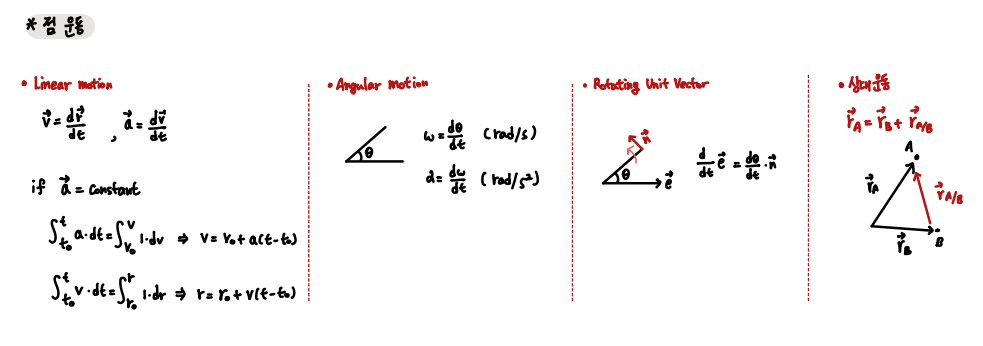 * 점 운동
• Linear motion
v⃗ = dr⃗/dt , a⃗ = dv⃗/dt
if a⃗ = constant
∫_{t₀}^{t} a·dt = ∫_{v₀}^{v} 1·dv ⇒ v = v₀ + a(t-t₀)
∫_{t₀}^{t} v·dt = ∫_{r₀}^{r} 1·dr ⇒ r = r₀ + v(t-t₀)
• Angular motion
θ
ω = dθ/dt (rad/s)
α = dω/dt (rad/s²)
• Rotating Unit Vector
n⃗
θ
e⃗
d/dt e⃗ = dθ/dt · n⃗
• 상대운동
r⃗_A = r⃗_B + r⃗_{A/B}
A
r⃗_A
r⃗_{A/B}
r⃗_B
B